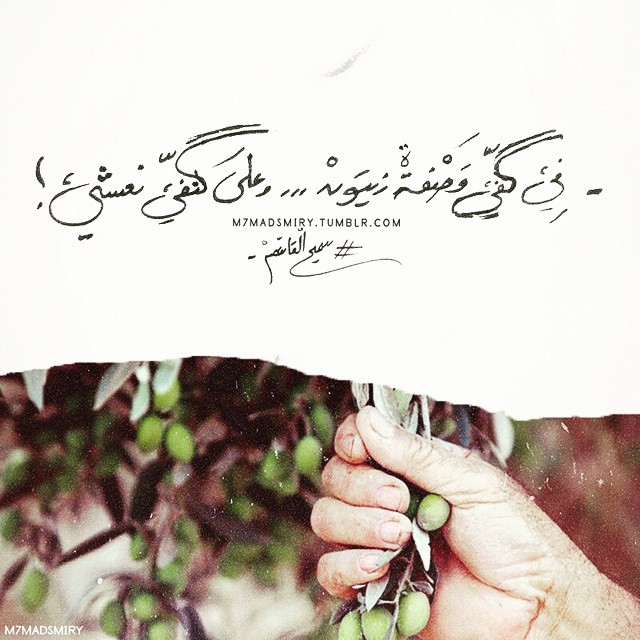 - في كفّي قصفة زيتون ... وعلى كتفي نعشي !
M7MADSMIRY.TUMBLR.COM
# سميح القاسم -
M7MADSMIRY